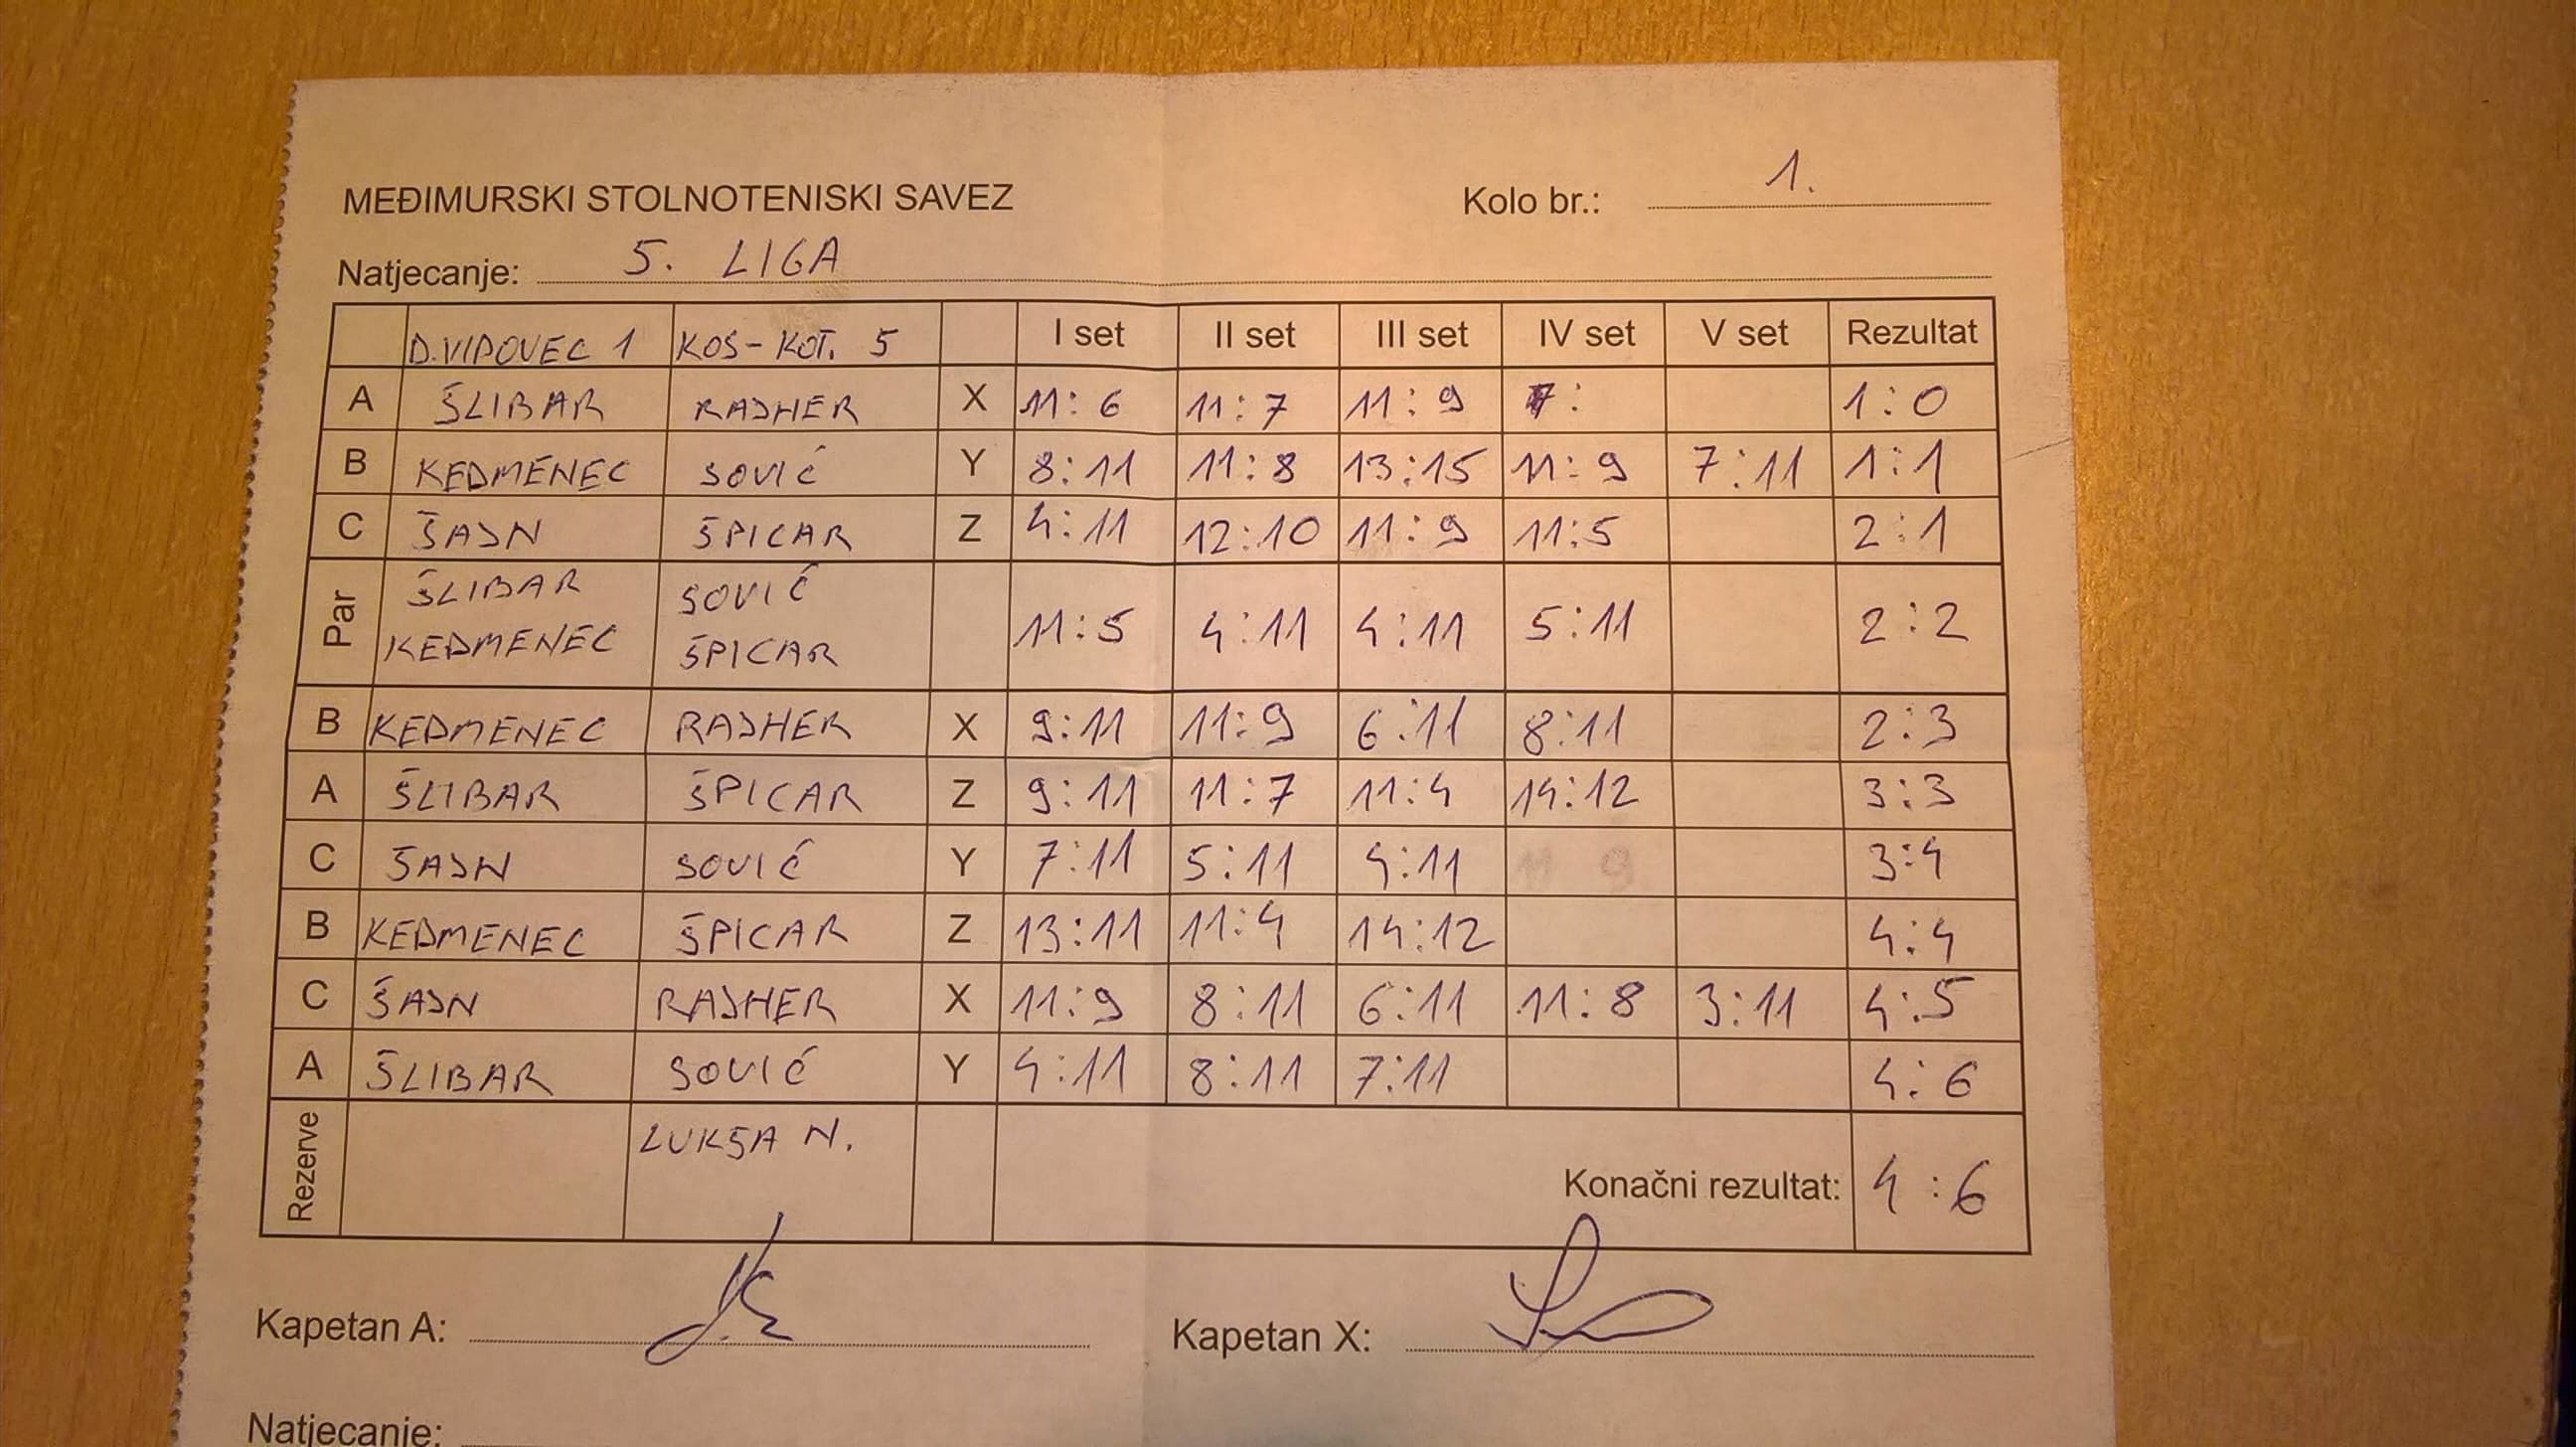 MEĐIMURSKI STOLNOTENISKI SAVEZ Kolo br.: 1.
Natjecanje: 5. LIGA
D.VIDOVEC 1 KOS-KOT. 5 I set II set III set IV set V set Rezultat
A ŠLIBAR RAJHER X 11:6 11:7 11:9 : 1:0
B KEDMENEC SOVIĆ Y 8:11 11:8 13:15 11:9 7:11 1:1
C ŠAJN ŠPICAR Z 4:11 12:10 11:9 11:5 2:1
Par ŠLIBAR SOVIĆ 11:5 4:11 4:11 5:11 2:2
KEDMENEC ŠPICAR
B KEDMENEC RAJHER X 9:11 11:9 6:11 8:11 2:3
A ŠLIBAR ŠPICAR Z 9:11 11:7 11:4 14:12 3:3
C ŠAJN SOVIĆ Y 7:11 5:11 4:11 3:4
B KEDMENEC ŠPICAR Z 13:11 11:4 14:12 4:4
C ŠAJN RAJHER X 11:9 8:11 6:11 11:8 3:11 4:5
A ŠLIBAR SOVIĆ Y 4:11 8:11 7:11 4:6
Rezerve LUKŠA N.
Konačni rezultat: 4:6
Kapetan A: Kapetan X:
Natjecanje: